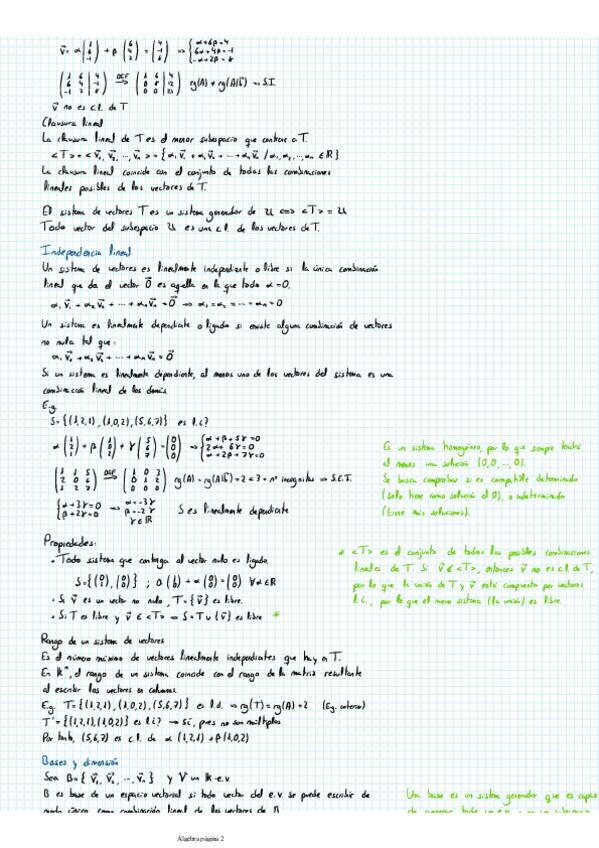 v⃗ = α(1 6 -1) + β(6 4 2) = (4 -1 8) ⇒ {α+6β=4
6α+4β=-1
-α+2β=8
rg(A) ≠ rg(A|b⃗) ⇒ S.I.
v⃗ no es c.l. de T
Clausura lineal
La clausura lineal de T es el menor subespacio que contiene a T.
<T> = <v⃗₁, v⃗₂, ..., v⃗ₙ> = {α₁v⃗₁ + α₂v⃗₂ + ... + αₙv⃗ₙ / α₁, α₂, ..., αₙ ∈ ℝ}
La clausura lineal coincide con el conjunto de todas las combinaciones
lineales posibles de los vectores de T.
El sistema de vectores T es un sistema generador de U ⟺ <T> = U
Todo vector del subespacio U es una c.l. de los vectores de T.
Independencia lineal
Un sistema de vectores es linealmente independiente o libre si la única combinación
lineal que da el vector 0⃗ es aquella en la que todo α=0.
α₁v⃗₁ + α₂v⃗₂ + ... + αₙv⃗ₙ = 0⃗ ⇒ α₁ = α₂ = ... = αₙ = 0
Un sistema es linealmente dependiente o ligado si existe alguna combinación de vectores
no nula tal que:
α₁v⃗₁ + α₂v⃗₂ + ... + αₙv⃗ₙ = 0⃗
Si un sistema es linealmente dependiente, al menos uno de los vectores del sistema es una
combinación lineal de los demás.
E.g.
S={(1,2,1), (1,0,2), (5,6,7)} es l.i?
α(1 2 1) + β(1 0 2) + γ(5 6 7) = (0 0 0) ⇒ {α+β+5γ=0
2α+6γ=0
α+2β+7γ=0
rg(A) = rg(A|b⃗) = 2 < 3 = nº incógnitas ⇒ S.C.I.
{α+3γ=0
β+2γ=0 ⇒ α=-3γ
β=-2γ
γ∈ℝ
S es linealmente dependiente
Es un sistema homogéneo, por lo que siempre tendrá
al menos una solución (0,0,...,0).
Se busca comprobar si es compatible determinado
(solo tiene como solución el 0), o indeterminado
(tiene más soluciones).
Propiedades:
• Todo sistema que contenga al vector nulo es ligado.
• Si v⃗ es un vector no nulo, T={v⃗} es libre.
• Si T es libre y v⃗ ∉ <T> ⇒ S=T∪{v⃗} es libre *
* <T> es el conjunto de todas las posibles combinaciones
lineales de T. Si v⃗ ∉ <T>, entonces v⃗ no es c.l. de T,
por lo que la unión de T y v⃗ está compuesto por vectores
l.i., por lo que el nuevo sistema (la unión) es libre.
Rango de un sistema de vectores
Es el número máximo de vectores linealmente independientes que hay en T.
En Kⁿ, el rango de un sistema coincide con el rango de la matriz resultante
al escribir los vectores en columnas.
E.g. T={(1,2,1), (1,0,2), (5,6,7)} es l.d. ⇒ rg(T) = rg(A) = 2 (E.g. anterior)
T'={(1,2,1), (1,0,2)} es l.i? → sí, pues no son múltiplos
Por tanto, (5,6,7) es c.l. de α(1,2,1) + β(1,0,2)
Bases y dimensión
Sea B={v⃗₁, v⃗₂, ..., v⃗ₙ} y V un K-e.v.
B es base de un espacio vectorial si todo vector del e.v. se puede escribir de
modo único como combinación lineal de los vectores de B
Una base es un sistema generador que es capaz
de generar todo un e.v.
Álgebra página 2